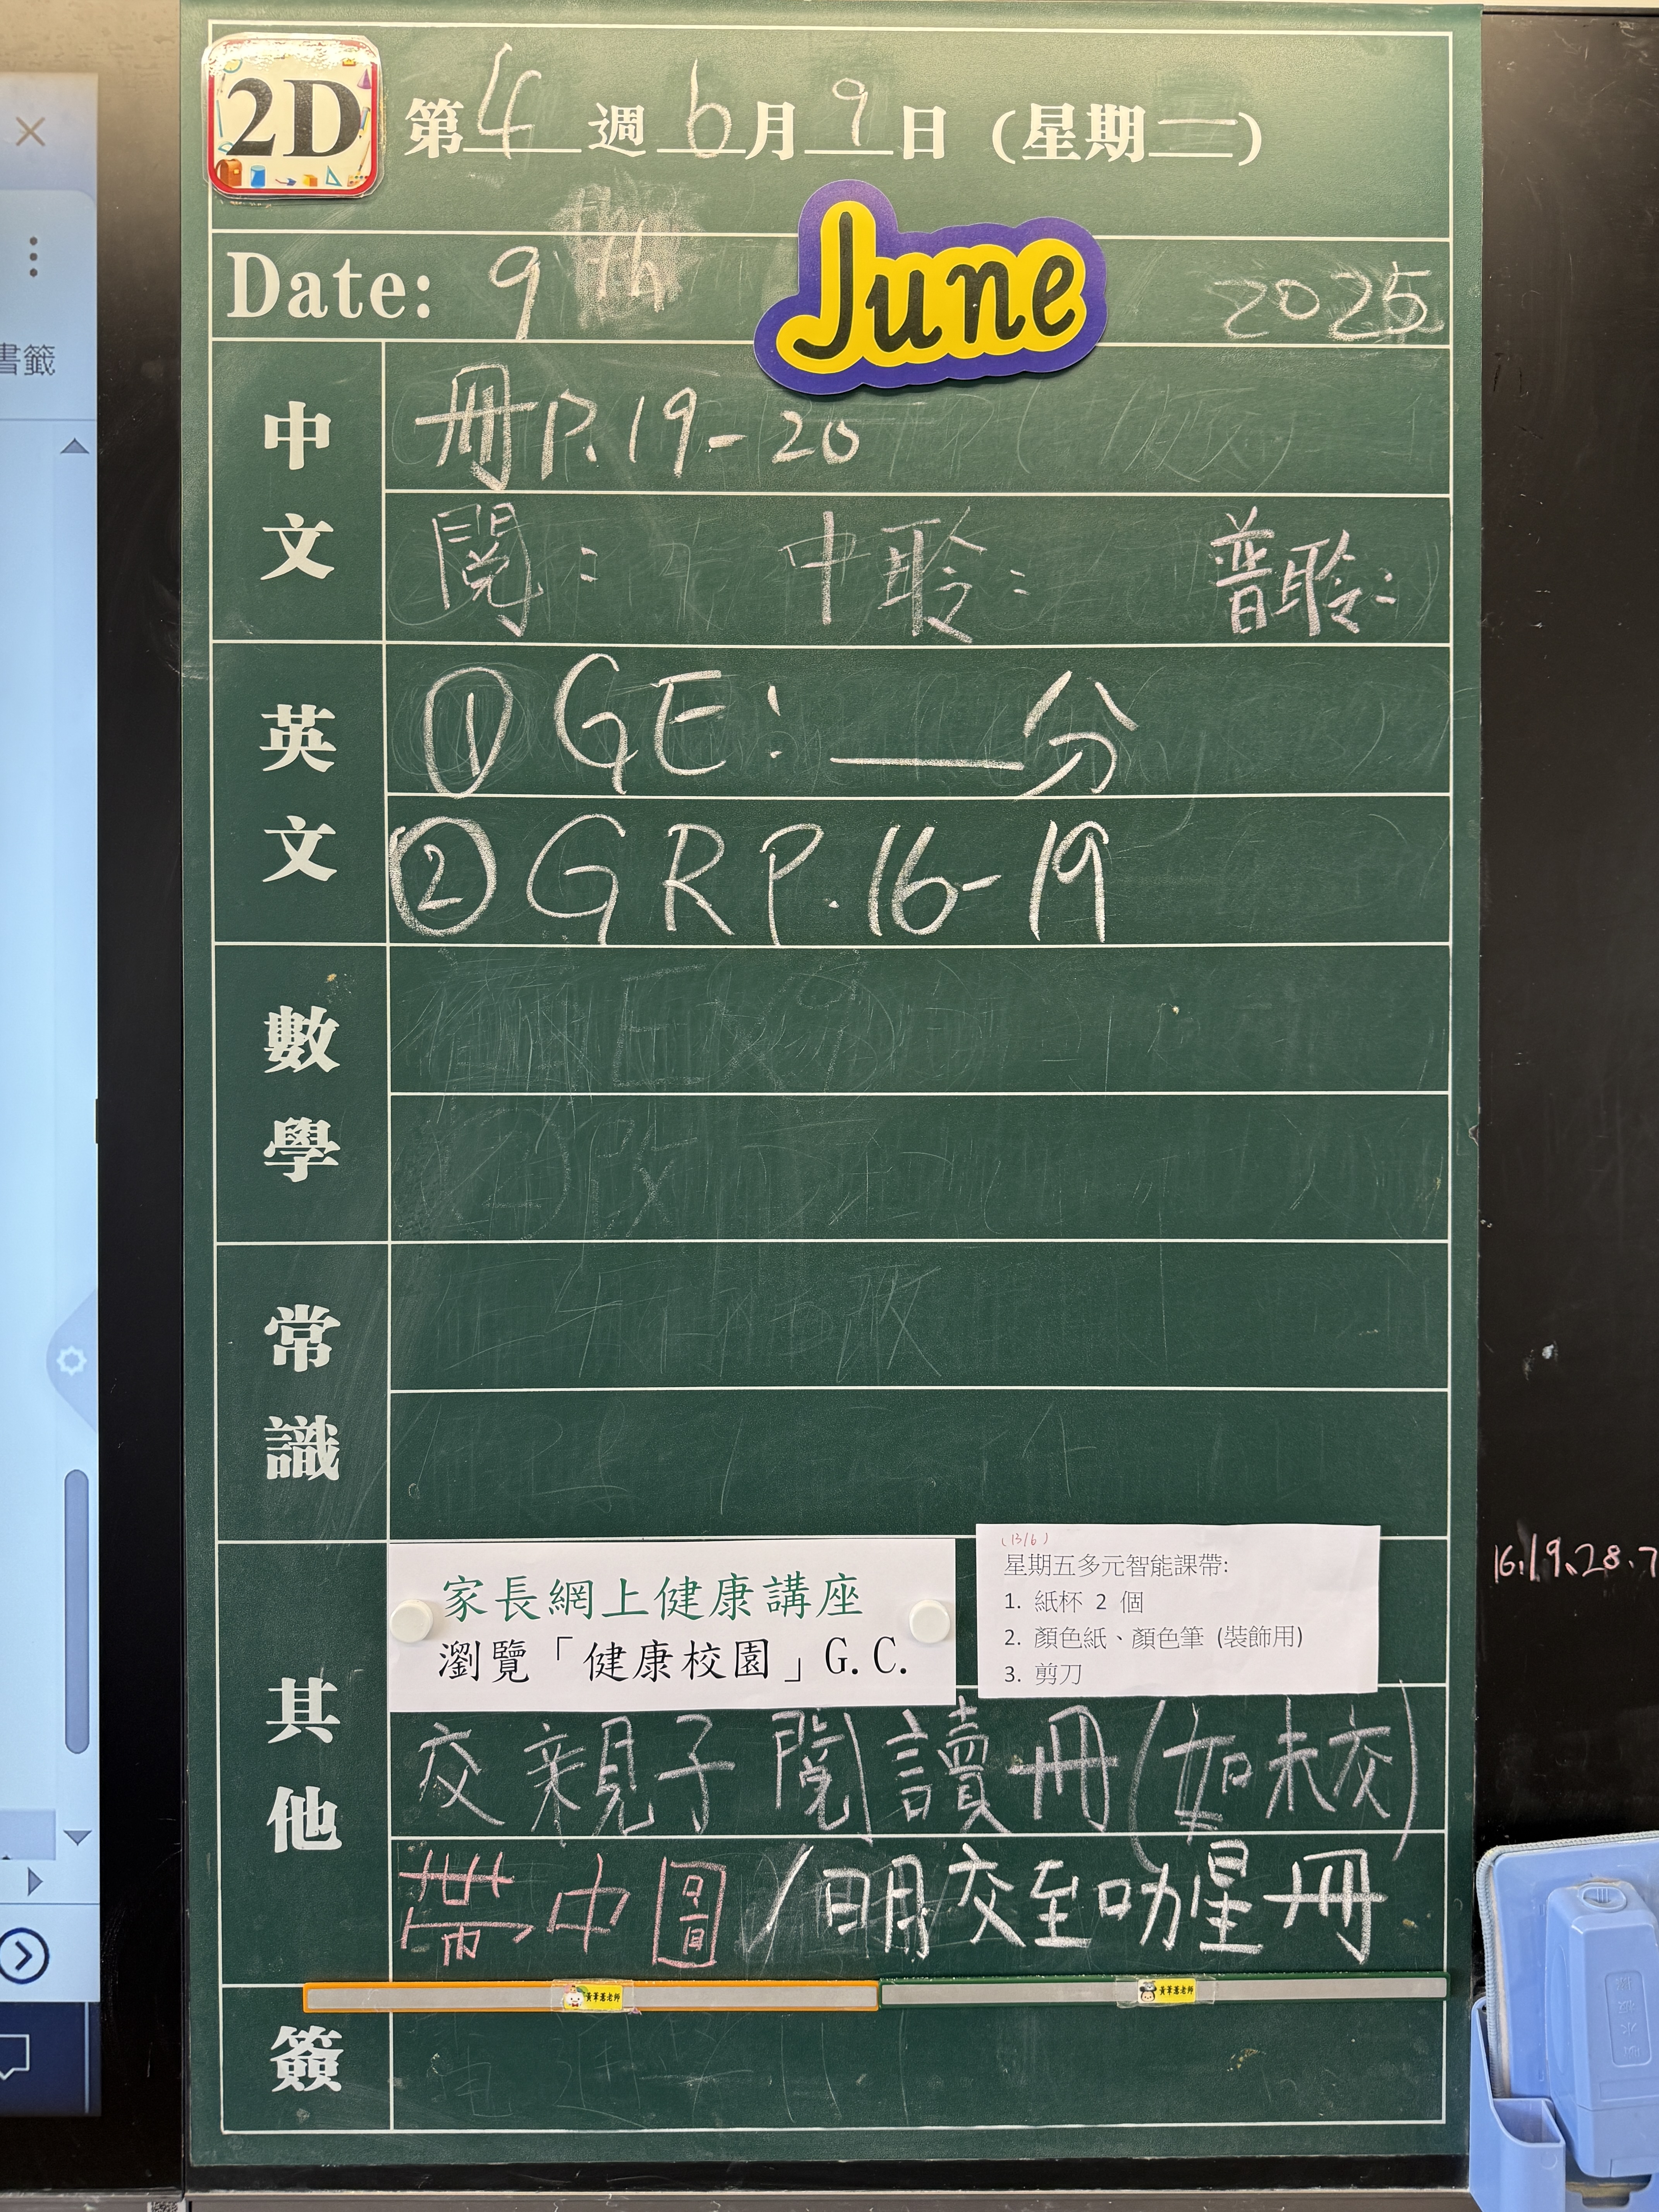 2D
第 4 週 6 月 9 日 (星期一)
Date: 9th June 2025
中文
冊P.19-20
閱: 中聆: 普聆:
英文
① GE: ___分
② GR P.16-19
數學
常識
其他
家長網上健康講座
瀏覽「健康校園」G.C.
(13/6)
星期五多元智能課帶:
1. 紙杯 2 個
2. 顏色紙、顏色筆 (裝飾用)
3. 剪刀
交親子閱讀冊(如未交)
帶中圖/明交至叻星冊
簽
書籤
16.19.28.7